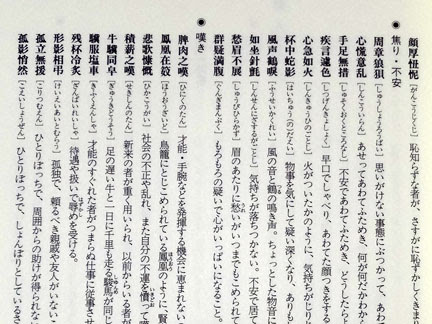 顔厚忸怩［がんこうじくじ］ 恥知らずな者が、さすがに恥ずかしくきまり
●焦り・不安
周章狼狽［しゅうしょうろうばい］ 思いがけない事態にぶつかって、あわ
心慌意乱［しんこういらん］ あせってあわてふためき、何が何だかわから
手足無措［しゅそくおくところなし］ 不安であわてふためき、どうしたら
疾言遽色［しつげんきょしょく］ 早口でしゃべり、あわてた顔つきをする
心急如火［しんきゅうひのごとし］ 火がついたかのように、気持ちがじり
杯中蛇影［はいちゅう(の)だえい］ 物事を気にして疑い深くなり、ありも
風声鶴唳［ふうせいかくれい］ 風の音と鶴の鳴き声。ちょっとした物音に
如坐針氈［しんせんにざするがごとし］ 気持ちが落ちつかない。不安で居て
愁眉不展［しゅうびひらかず］ 眉のあたりに愁いがいつまでもこめられて
群疑満腹［ぐんぎまんぷく］ もろもろの疑いで心がいっぱいになること。
●嘆き
脾肉之嘆［ひにくのたん］ 才能・手腕などを発揮する機会に恵まれない
鳳凰在笯［ほうおうざいど］ 鳥籠にとじこめられている鳳凰のように、賢
悲歌慷慨［ひかこうがい］ 社会の不正や乱れ、また自分の不運を憤って嘆
積薪之嘆［せきしんのたん］ 新来の者が重く用いられ、以前からいる者が
牛驥同皁［ぎゅうきどうそう］ 足の遅い牛と一日に千里も走る駿馬が同じ
驥服塩車［きふくえんしゃ］ 才能のすぐれた者がつまらぬ仕事に従事させ
残杯冷炙［ざんぱいれいしゃ］ 待遇や扱いで辱めを受ける。
形影相弔［けいえいあいとむらう］ 孤独で、頼るべき親戚や友人がいない
孤立無援［こりつむえん］ ひとりぼっちで、周囲からの助けが得られない
孤影悄然［こえいしょうぜん］ ひとりぼっちで、しょんぼりとしているさ